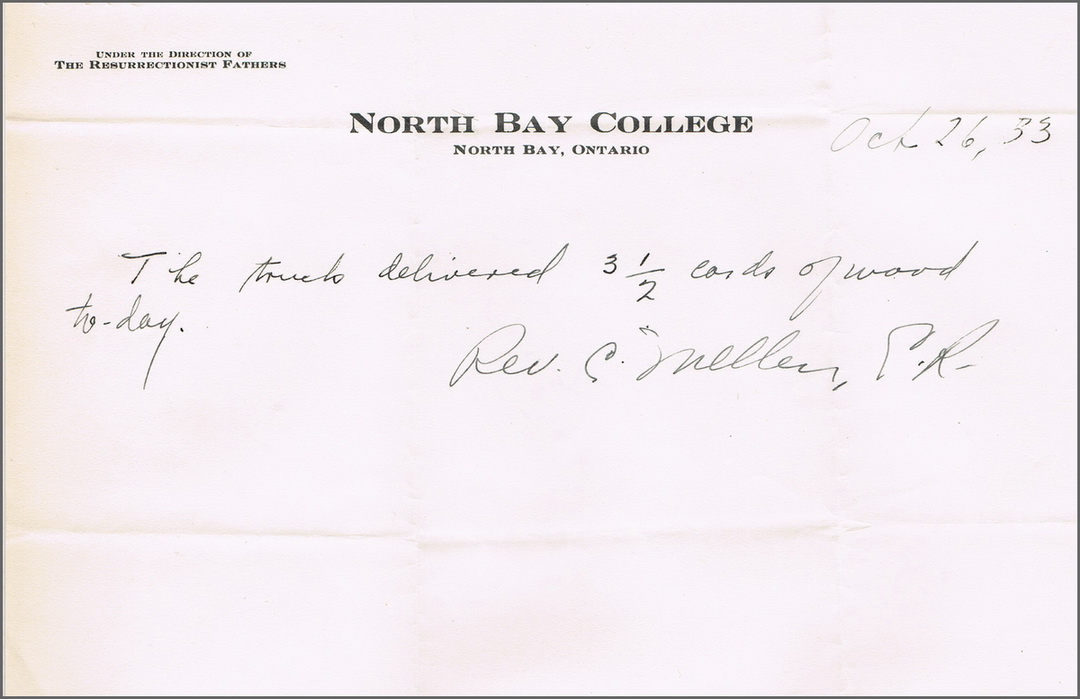 UNDER THE DIRECTION OF
THE RESURRECTIONIST FATHERS
NORTH BAY COLLEGE
NORTH BAY, ONTARIO
Oct 26, 33
The truck delivered 3 1/2 cords of wood
to-day.
Rev. C. C.R.